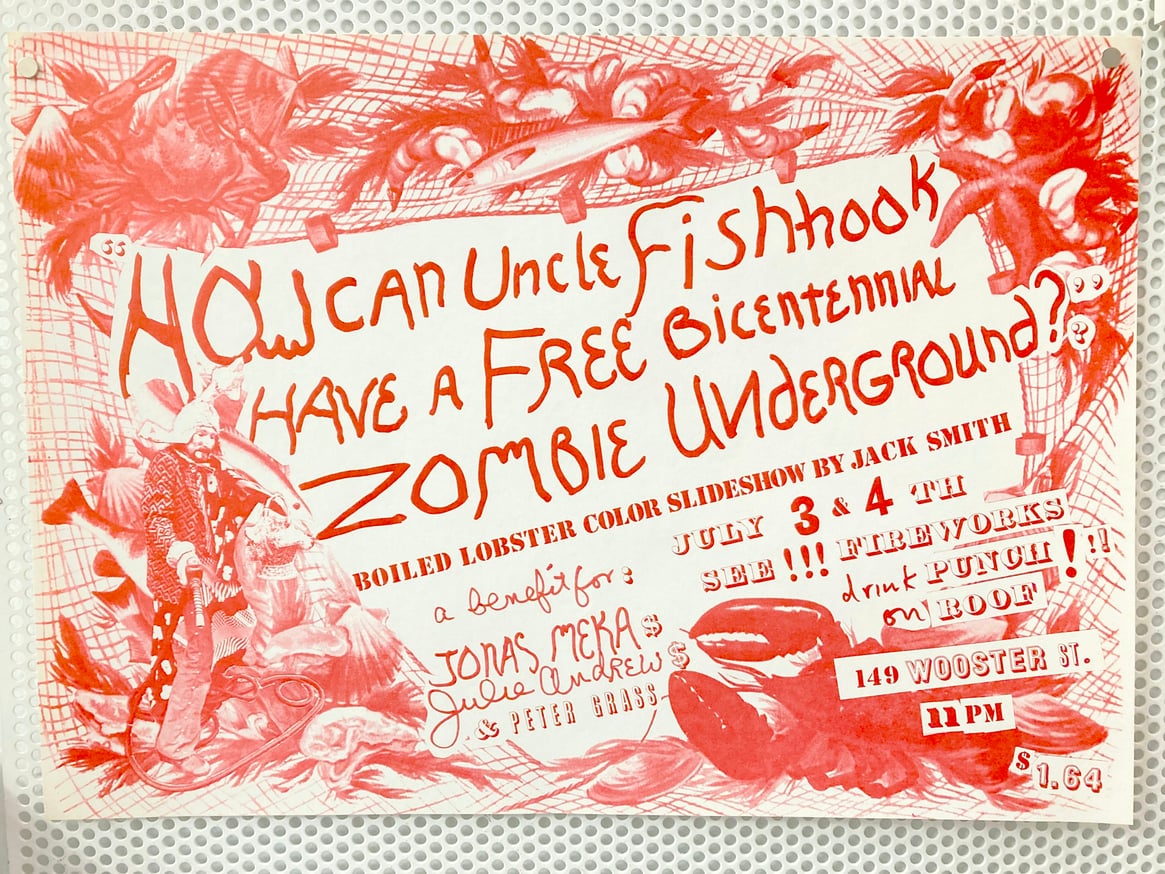 “HOW CAN Uncle Fishhook
HAVE A FREE BICENTENNIAL
ZOMBIE UNDERGROUND?”?
BOILED LOBSTER COLOR SLIDESHOW BY JACK SMITH
JULY 3 & 4 TH
SEE!!! FIREWORKS
drink PUNCH!!!
on ROOF
a benefit for:
JONAS MEKA$
Julie Andrew$
& PETER GRASS
149 WOOSTER ST.
11 PM
$1.64